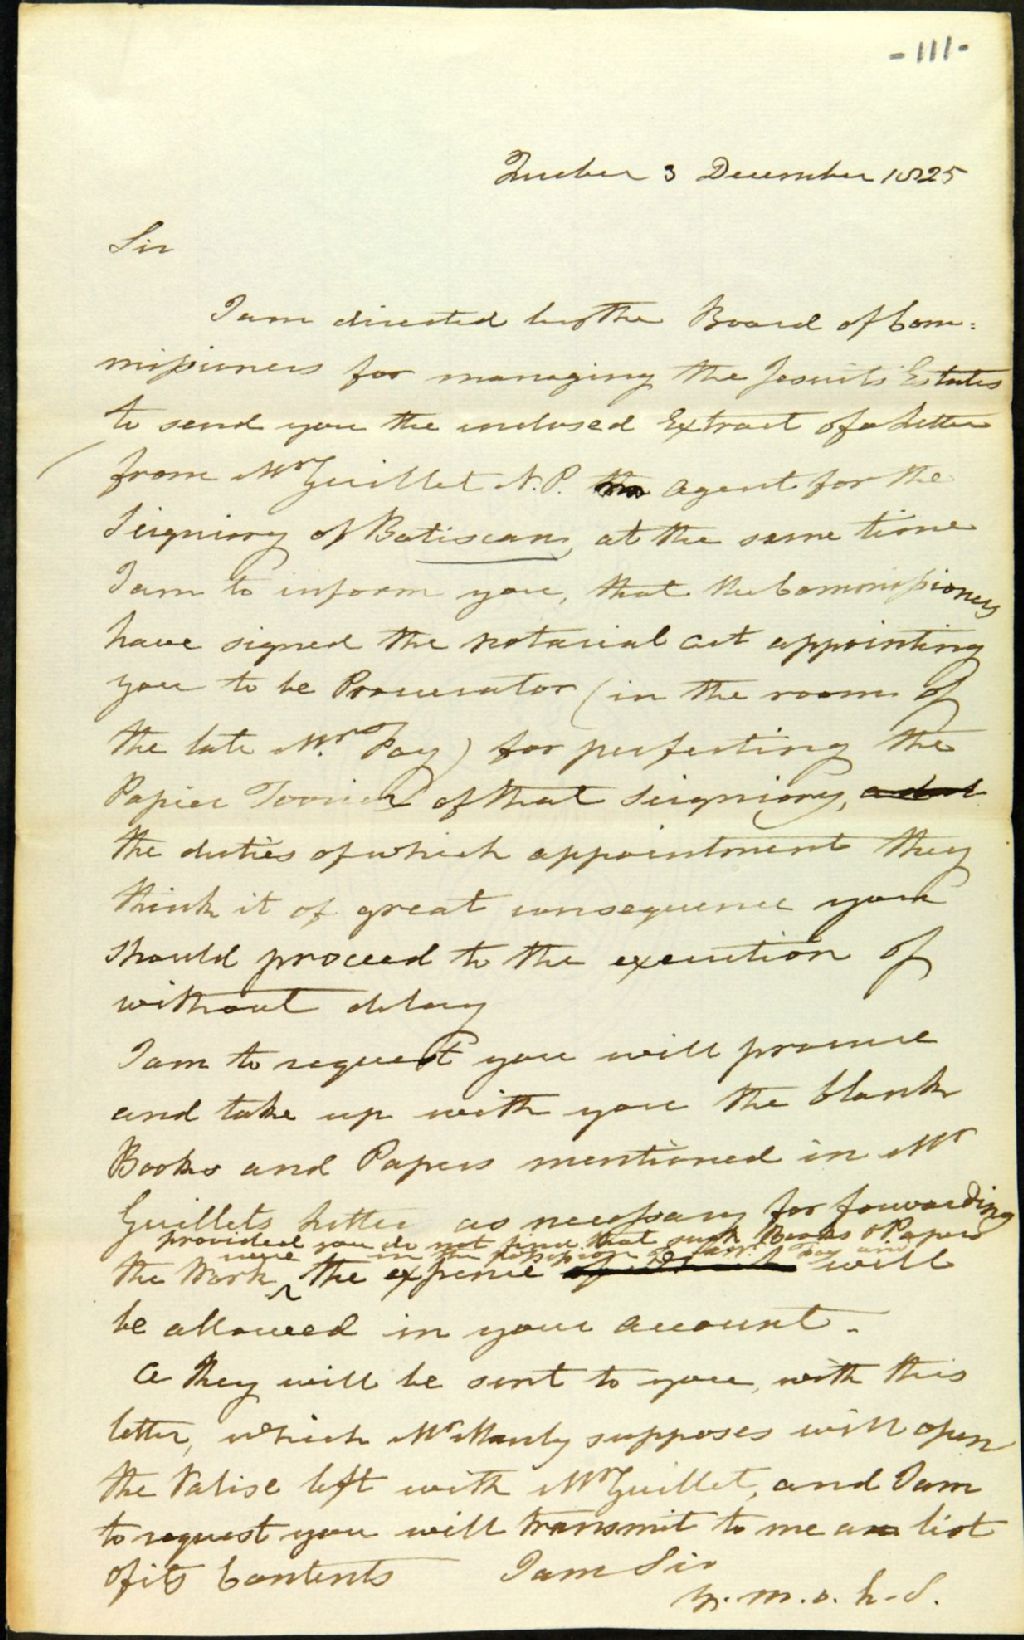 -111-
Quebec 3 December 1825
Sir
I am directed by the Board of Com=
missioners for managing the Jesuits Estates
to send you the inclosed Extract of a Letter
from Mr Guillet N.P. agent for the
Seigniory of Batiscan, at the same time
I am to inform you, that the Commissioners
have signed the notarial act appointing
you to be Procurator (in the room of
the late Mr. Fay) for perfecting the
Papier Terrier of that Seigniory,
the duties of which appointment they
think it of great consequence you
should proceed to the execution of
without delay
I am to request you will procure
and take up with you the blank
Books and Papers mentioned in Mr
Guillets Letter as necessary for forwarding
provided you do not find that such Books & Papers
were in the possession of Mr Fay and
the Work ^ the expence will
be allowed in your account.
A Key will be sent to you, with this
letter, which Mr Manly supposes will open
the Valise left with Mr Guillet, and I am
to request you will transmit to me a list
of its Contents I am Sir
Y. m. o. h. S.